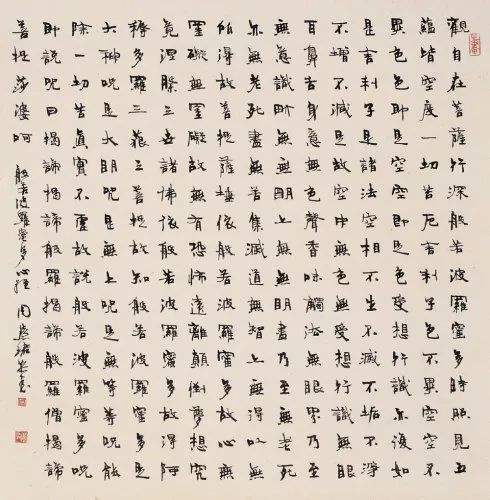 觀自在菩薩行深般若波羅蜜多時照見五
蘊皆空度一切苦厄舍利子色不異空空不
異色色即是空空即是色受想行識亦復如
是舍利子是諸法空相不生不滅不垢不淨
不增不減是故空中無色無受想行識無眼
耳鼻舌身意無色聲香味觸法無眼界乃至
無意識界無無明亦無無明盡乃至無老死
亦無老死盡無苦集滅道無智亦無得以無
所得故菩提薩埵依般若波羅蜜多故心無
罣礙無罣礙故無有恐怖遠離顛倒夢想究
竟涅槃三世諸佛依般若波羅蜜多故得阿
耨多羅三藐三菩提故知般若波羅蜜多是
大神咒是大明咒是無上咒是無等等咒能
除一切苦真實不虛故說般若波羅蜜多咒
即說咒曰揭諦揭諦般羅揭諦般羅僧揭諦
菩提莎婆呵 般若波羅蜜多心經 周